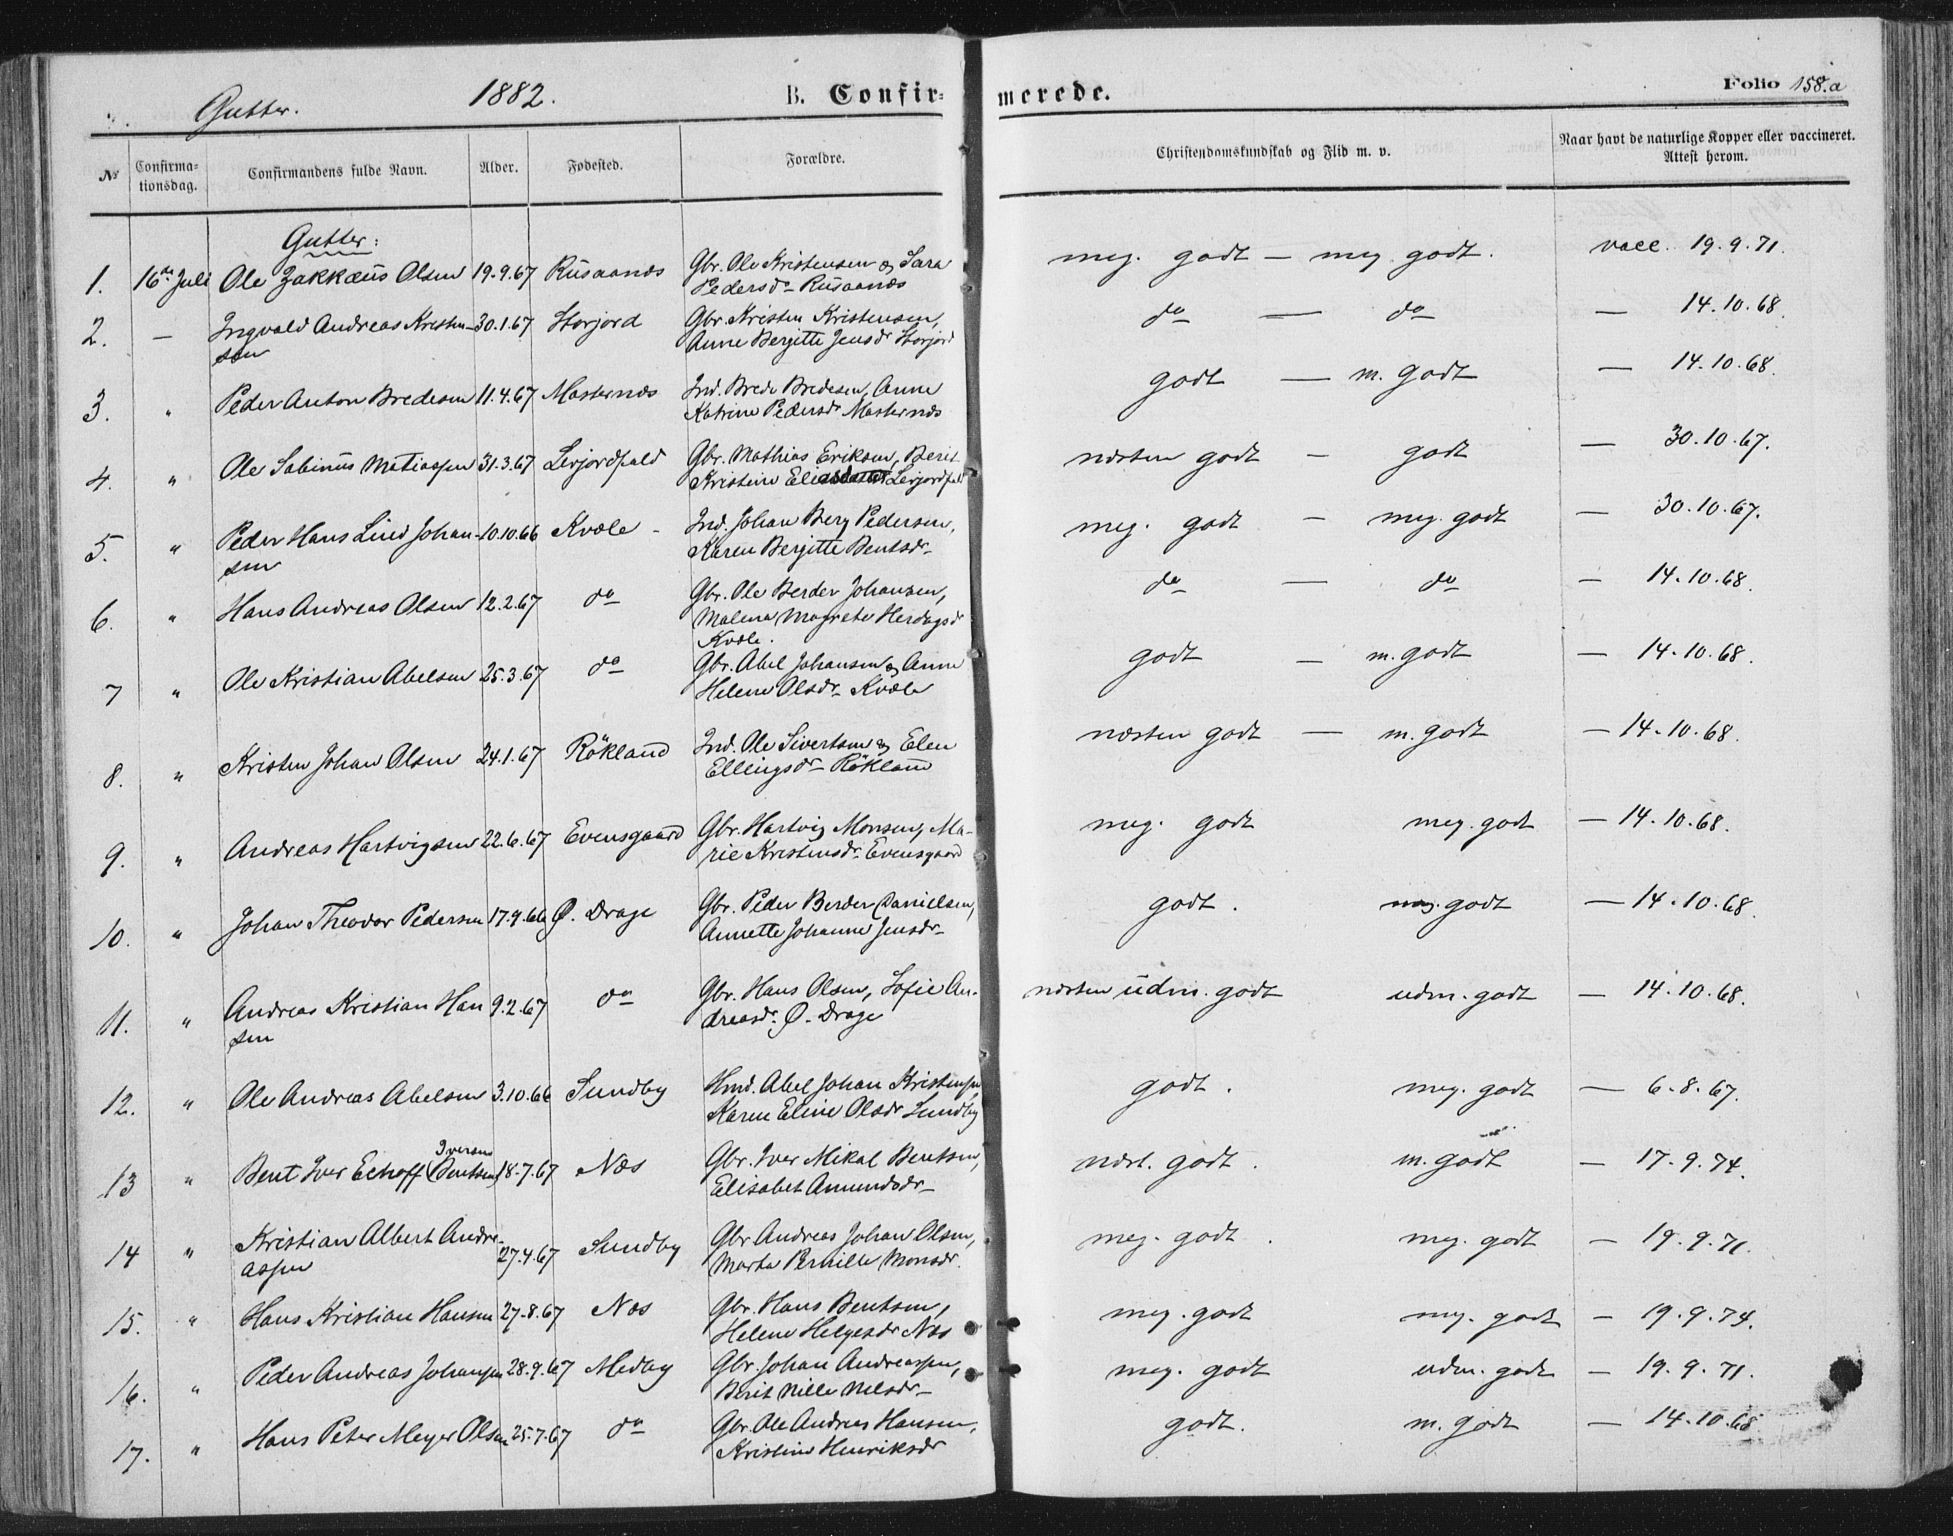 Gutter. 1882. B. Confirmerede. Folio 158.a
No Confirmationsdag. Confirmandens fulde Navn. Alder. Fødested. Forældre. Christendomskundskab og Flid m. v. Naar havt de naturlige Kopper eller vaccineret. Attest herom.
Gutter:
1. 16de Juli Ole Zakkæus Olsen 19.9.67 Rusaanæs Gbr. Ole Kristensen & Sara meg. godt — meg. godt. vacc. 19.9.71.
Pedersdr Rusaanæs
2. — Ingvald Andreas Kristen- 30.1.67 Storjord Gbr. Kristen Kristensen, do — do — 14.10.68.
sen Anne Bergitte Jensdr Storjord
3. " Peder Anton Bredesen 11.4.67 Masternæs Ind. Brede Bredesen, Anne godt — m. godt — 14.10.68.
Katrine Pedersdr Masternæs
4. " Ole Sabinus Matiassen 31.3.67 Leirjordfald Gbr. Mathias Eriksen, Berit næsten godt — godt — 30.10.67.
Kristine Eliasdatter Leirjordfald
5. " Peder Hans Lind Johan- 10.10.66 Kvæle Ind. Johan Berg Pedersen, meg. godt — meg. godt — 30.10.67.
sen Karen Bergitte Bentsdr
6. " Hans Andreas Olsen 12.2.67 do Gbr. Ole Berder Johansen, do — do — 14.10.68.
Malena Magrete Herdagsdr
Kvæle.
7 " Ole Kristian Abelsen 25.3.67 do Gbr. Abel Johansen & Anne godt — m. godt — 14.10.68.
Helene Olsdr Kvæle
8. " Kristen Johan Olsen 24.1.67 Rökland Ind. Ole Sivertsen & Elen næsten godt — m. godt — 14.10.68.
Ellingsdr Rökland
9. " Andreas Hartvigsen 22.6.67 Evensgaard Gbr. Hartvig Monsen, Ma- meg. godt meg. godt — 14.10.68.
rie Kristensdr Evensgaard
10. " Johan Theodor Pedersen 17.9.66 Ø. Drage Gbr. Peder Berder Danielsen, godt. meg. godt — 14.10.68.
Annette Johanne Jensdr
11. " Andreas Kristian Han 9.2.67 do Gbr. Hans Olsen, Sofie An- næsten udm. godt udm. godt — 14.10.68.
sen dreasdr. Ø. Drage
12. " Ole Andreas Abelsen 3.10.66 Sundby Hmd. Abel Johan Kristensen godt. meg. godt — 6.8.67.
Karen Eline Olsdr Sundby
Iversen
13 " Bent Iver Echoff (Bentsen) 18.7.67 Næs Gbr. Iver Mikal Bentsen, næst. godt. m. godt — 17.9.74.
Elisabet Amundsdr
14 " Kristian Albert Andre- 27.4.67 Sundby Gbr Andreas Johan Olsen, meg. godt. meg. godt — 19.9.71.
assen Marta Pernille Monsdr.
15. " Hans Kristian Hansen 27.8.67 Næs Gbr. Hans Bentsen, meg. godt meg. godt — 19.9.74.
Helene Helgesdr Næs
16. " Peder Andreas Johansen 28.9.67 Medby Gbr. Johan Andreassen, meg. godt udm. godt — 19.9.71.
Berit Nille Nelsdr
17. " Hans Peter Meyer Olsen 25.7.67 do Gbr. Ole Andreas Hansen, godt. m. godt — 14.10.68
Kristine Henriksdr